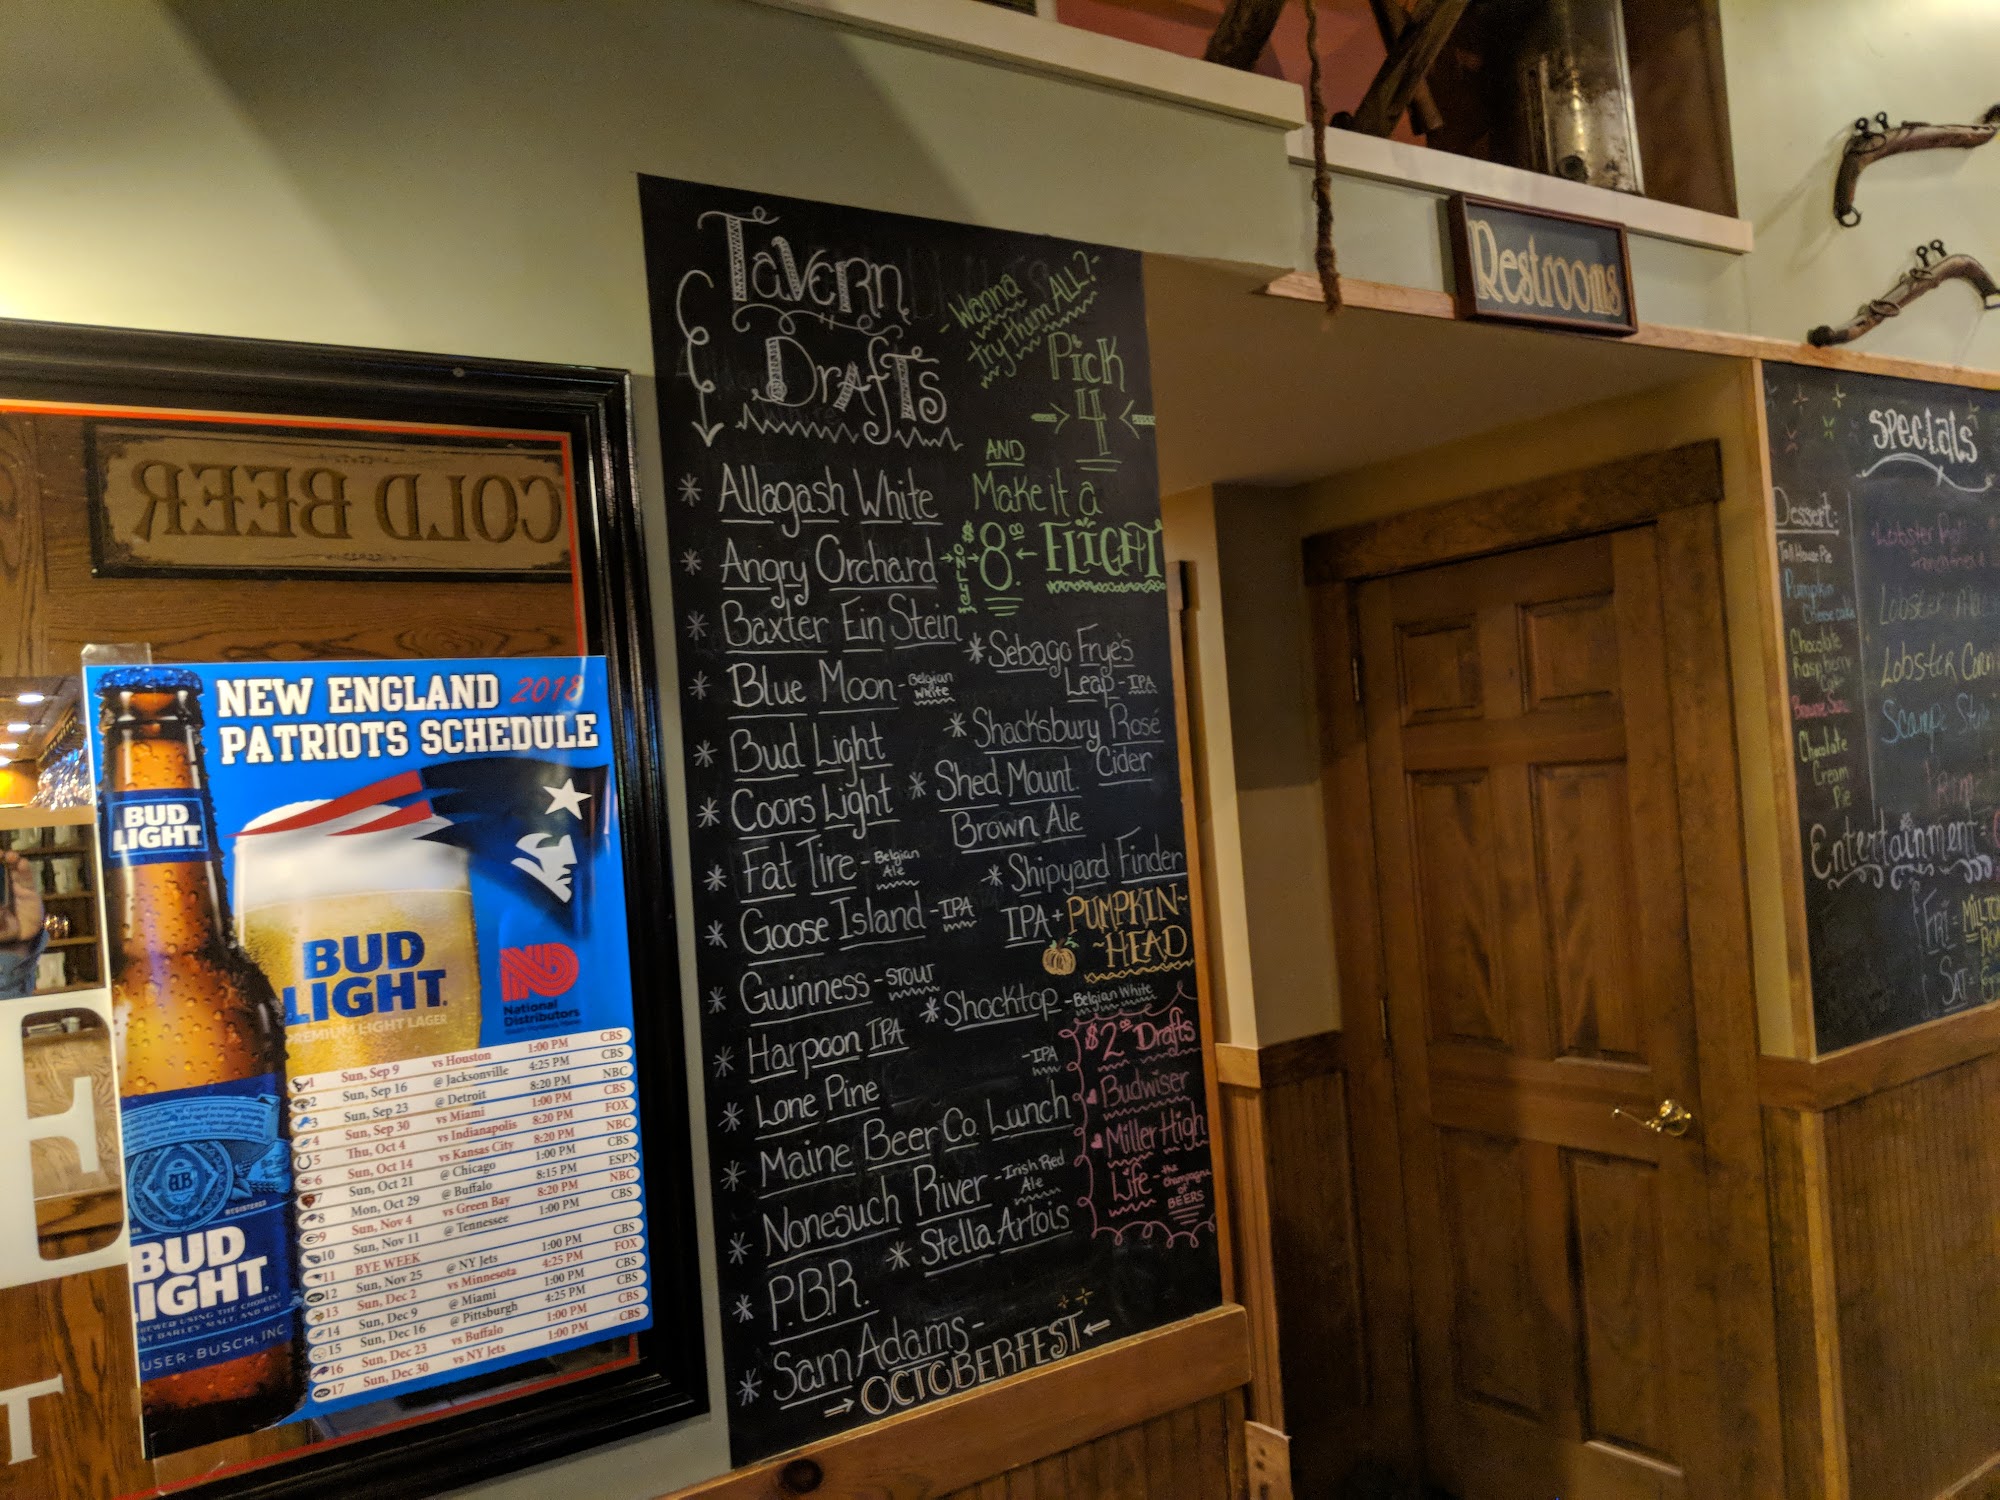 COLD BEER
NEW ENGLAND 2018
PATRIOTS SCHEDULE
BUD
LIGHT
BUD
LIGHT
PREMIUM LIGHT LAGER
National
Distributors
BUD
LIGHT
USER-BUSCH, INC.
1 Sun, Sep 9 vs Houston 1:00 PM CBS
2 Sun, Sep 16 @ Jacksonville 4:25 PM CBS
3 Sun, Sep 23 @ Detroit 8:20 PM NBC
4 Sun, Sep 30 vs Miami 1:00 PM CBS
5 Thu, Oct 4 vs Indianapolis 8:20 PM FOX
6 Sun, Oct 14 vs Kansas City 8:20 PM NBC
7 Sun, Oct 21 @ Chicago 1:00 PM CBS
8 Mon, Oct 29 @ Buffalo 8:15 PM ESPN
9 Sun, Nov 4 vs Green Bay 8:20 PM NBC
10 Sun, Nov 11 @ Tennessee 1:00 PM CBS
11 BYE WEEK
12 Sun, Nov 25 @ NY Jets 1:00 PM CBS
13 Sun, Dec 2 vs Minnesota 4:25 PM FOX
14 Sun, Dec 9 @ Miami 1:00 PM CBS
15 Sun, Dec 16 @ Pittsburgh 4:25 PM CBS
16 Sun, Dec 23 vs Buffalo 1:00 PM CBS
17 Sun, Dec 30 vs NY Jets 1:00 PM CBS
Tavern
Drafts
* Allagash White
* Angry Orchard
* Baxter Ein Stein
* Blue Moon - Belgian White
* Bud Light
* Coors Light
* Fat Tire - Belgian Ale
* Goose Island - IPA
* Guinness - Stout
* Harpoon IPA
* Lone Pine - IPA
* Maine Beer Co. Lunch
* Nonesuch River - Irish Red Ale
* P.B.R.
* Sam Adams -
→ OCTOBERFEST ←
- Wanna
try them ALL? -
Pick
4
AND
Make it a
ONLY $8.00 FLIGHT
* Sebago Frye's
Leap - IPA
* Shacksbury Rosé
Cider
* Shed Mount.
Brown Ale
* Shipyard Finder
IPA + PUMPKIN-
-HEAD
* Shocktop - Belgian White
* Stella Artois
$2.00 Drafts
Budwiser
Miller High
Life - the champagne of BEERS
Restrooms
Specials
Dessert:
Toll House Pie
Pumpkin
Cheesecake
Chocolate
Raspberry
Brownie
Chocolate
Cream
Pie
Lobster Roll
french fries
Lobster
Lobster
Entertainment =
Fri =
Sat =